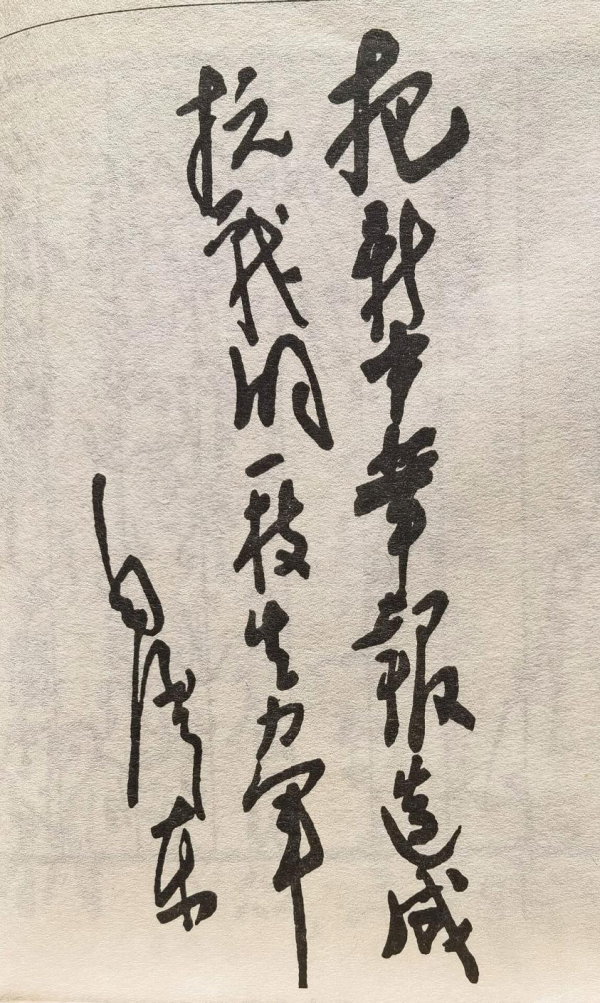 把新中華報造成
抗战的一枝生力军
毛泽东